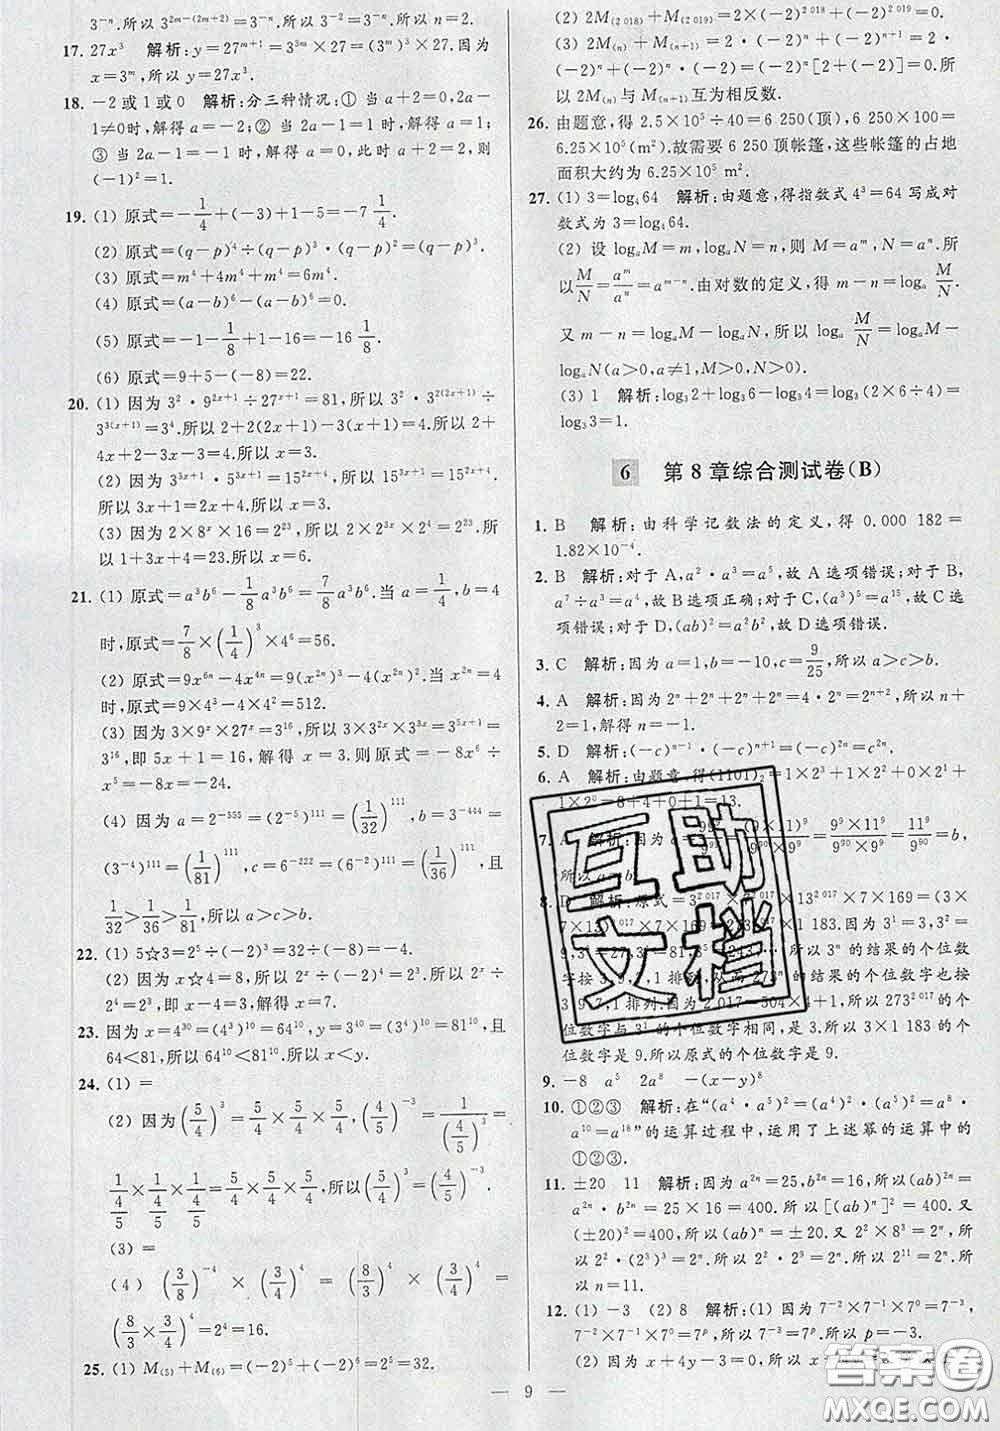 3⁻ⁿ.所以 3^{2m-(2m+2)}=3⁻ⁿ.所以 3⁻²=3⁻ⁿ.所以 n=2.
17. 27x³ 解析:y=27^{m+1}=3^{3m}×27=(3^m)³×27.因为
x=3^m,所以 y=27x³.
18. -2或1或0 解析:分三种情况:① 当 a+2=0,2a-
1≠0时,解得 a=-2;② 当 2a-1=1时,解得 a=1;
③ 当 2a-1=-1时,解得 a=0,此时 a+2=2,则
(-1)²=1.
19. (1) 原式=-1/4+(-3)+1-5=-7 1/4.
(2) 原式=(q-p)⁴÷(q-p)³·(q-p)²=(q-p)³.
(3) 原式=m⁴+4m⁴+m⁴=6m⁴.
(4) 原式=(a-b)⁶-(a-b)⁶=0.
(5) 原式=-1-1/8+1-16=-16 1/8.
(6) 原式=9+5-(-8)=22.
20. (1) 因为 3²·9^{2x+1}÷27^{x+1}=81,所以 3²·3^{2(2x+1)}÷
3^{3(x+1)}=3⁴.所以 2+2(2x+1)-3(x+1)=4.所以 2+
4x+2-3x-3=4.所以 x=3.
(2) 因为 3^{x+1}·5^{x+1}=15^{2x+4},所以 15^{x+1}=15^{2x+4}.
所以 x+1=2x+4.所以 x=-3.
(3) 因为 2×8^x×16=2²³,所以 2×2^{3x}×2⁴=2²³.所
以 1+3x+4=23.所以 x=6.
21. (1) 原式=a³b⁶-1/8a³b⁶=7/8a³b⁶.当 a=1/4,b=4
时,原式=7/8×(1/4)³×4⁶=56.
(2) 原式=9x^{6n}-4x^{4n}=9(x^{2n})³-4(x^{2n})².当 x^{2n}=4
时,原式=9×4³-4×4²=512.
(3) 因为 3×9^x×27^x=3¹⁶,所以 3×3^{2x}×3^{3x}=3^{5x+1}=
3¹⁶,即 5x+1=16,解得 x=3.则原式=-8x⁶÷
x⁵=-8x=-24.
(4) 因为 a=2⁻⁵⁵⁵=(2⁻⁵)¹¹¹=(1/32)¹¹¹,b=3⁻⁴⁴⁴=
(3⁻⁴)¹¹¹=(1/81)¹¹¹,c=6⁻²²²=(6⁻²)¹¹¹=(1/36)¹¹¹,且
1/32>1/36>1/81,所以 a>c>b.
22. (1) 5☆3=2⁵÷(-2)³=32÷(-8)=-4.
(2) 因为 x☆4=8,所以 2^x÷(-2)⁴=8.所以 2^x÷
2⁴=2³,即 x-4=3,解得 x=7.
23. 因为 x=4³⁰=(4³)¹⁰=64¹⁰,y=3⁴⁰=(3⁴)¹⁰=81¹⁰,且
64<81,所以 64¹⁰<81¹⁰.所以 x<y.
24. (1) =
(2) 因为(5/4)³=5/4×5/4×5/4,(4/5)⁻³=1/(4/5)³=
1/(4/5)×1/(4/5)×1/(4/5)=5/4×5/4×5/4,所以(5/4)³=(4/5)⁻³.
(3) =
(4) (3/8)⁻⁴×(3/4)⁴=(8/3)⁴×(3/4)⁴=
(8/3×3/4)⁴=2⁴=16.
25. (1) M₍₅₎+M₍₆₎=(-2)⁵+(-2)⁶=2⁵=32.
(2) 2M₍₂ ₀₁₈₎+M₍₂ ₀₁₉₎=2×(-2)^{2 018}+(-2)^{2 019}=0.
(3) 2M₍ₙ₎+M₍ₙ₊₁₎=2×(-2)ⁿ+(-2)ⁿ⁺¹=2·
(-2)ⁿ+(-2)ⁿ·(-2)=(-2)ⁿ[2+(-2)]=0.所
以 2M₍ₙ₎与 M₍ₙ₊₁₎互为相反数.
26. 由题意,得 2.5×10⁵÷40=6 250(顶),6 250×100=
6.25×10⁵(m²).故需要 6 250 顶帐篷,这些帐篷的占地
面积大约为 6.25×10⁵ m².
27. (1) 3=log₄64 解析:由题意,得指数式 4³=64 写成对
数式为 3=log₄64.
(2) 设 logₐM=m,logₐN=n,则 M=a^m,N=aⁿ.所
以M/N=a^m/aⁿ=a^{m-n}.由对数的定义,得 m-n=logₐ M/N.
又 m-n=logₐM-logₐN,所以 logₐ M/N=logₐM-
logₐN(a>0,a≠1,M>0,N>0).
(3) 1 解析:log₃2+log₃6-log₃4=log₃(2×6÷4)=
log₃3=1.
6 第8章综合测试卷(B)
1. B 解析:由科学记数法的定义,得 0.000 182=
1.82×10⁻⁴.
2. B 解析:对于A,a²·a³=a⁵,故A选项错误;对于B,
a⁷÷a³=a⁴,故B选项正确;对于C,(a³)⁵=a¹⁵,故C选
项错误;对于D,(ab)²=a²b²,故D选项错误.
3. C 解析:因为 a=1,b=-10,c=9/25,所以 a>c>b.
4. A 解析:因为 2ⁿ+2ⁿ+2ⁿ+2ⁿ=4·2ⁿ=2ⁿ⁺²,所以 n+
2=1,解得 n=-1.
5. D 解析:(-c)ⁿ⁻¹·(-c)ⁿ⁺¹=(-c)²ⁿ=c²ⁿ.
6. A 解析:由题意,得(1101)₂=1×2³+1×2²+0×2¹+
1×2⁰=8+4+0+1=13.
7. A 解析:因为 a=99⁹/9⁹⁹=(9×11)⁹/9^{90}×9⁹=9⁹×11⁹/9⁹⁰×9⁹=11⁹/9⁹⁰=b,
所以 a=b.
8. D 解析:原式=3^{2 017}×7×169=(3×
3 183.因为 3¹=3,3²=
所以 3ⁿ的结果的个位数
字按 3,9,7,1 排列.从而 273ⁿ的结果的个位数字也按
3,9,7,1 排列.因为 2 017=504×4+1,所以 273^{2 017}的个
位数字与 3¹ 的个位数字相同,是 3.所以 3×1 183 的个
位数字是 9.所以原式的个位数字是 9.
9. -8 a⁵ 2a⁸ -(x-y)⁸
10. ①②③ 解析:在“(a⁴·a⁵)²=(a⁴)²·(a⁵)²=a⁸·
a¹⁰=a¹⁸”的运算过程中,运用了上述幂的运算中的
①②③.
11. ±20 11 解析:因为 a²ⁿ=25,b²ⁿ=16,所以(ab)²ⁿ=
a²ⁿ·b²ⁿ=25×16=400.所以[(ab)ⁿ]²=400.又
(±20)²=400,所以(ab)ⁿ=±20.又 2²×8³=2ⁿ,所
以 2²·(2³)³=2ⁿ.所以 2²·2⁹=2ⁿ.所以 2¹¹=2ⁿ.
所以 n=11.
12. (1) -3 (2) 8 解析:(1) 因为 7⁻²×7⁻¹×7⁰=7⁻³,
7⁻²×7⁻¹×7⁰=7^p,所以 7⁻³=7^p.所以 p=-3.
(2) 因为 x+4y-3=0,
— 9 —
互助
文档
答案圈
MXQE.COM